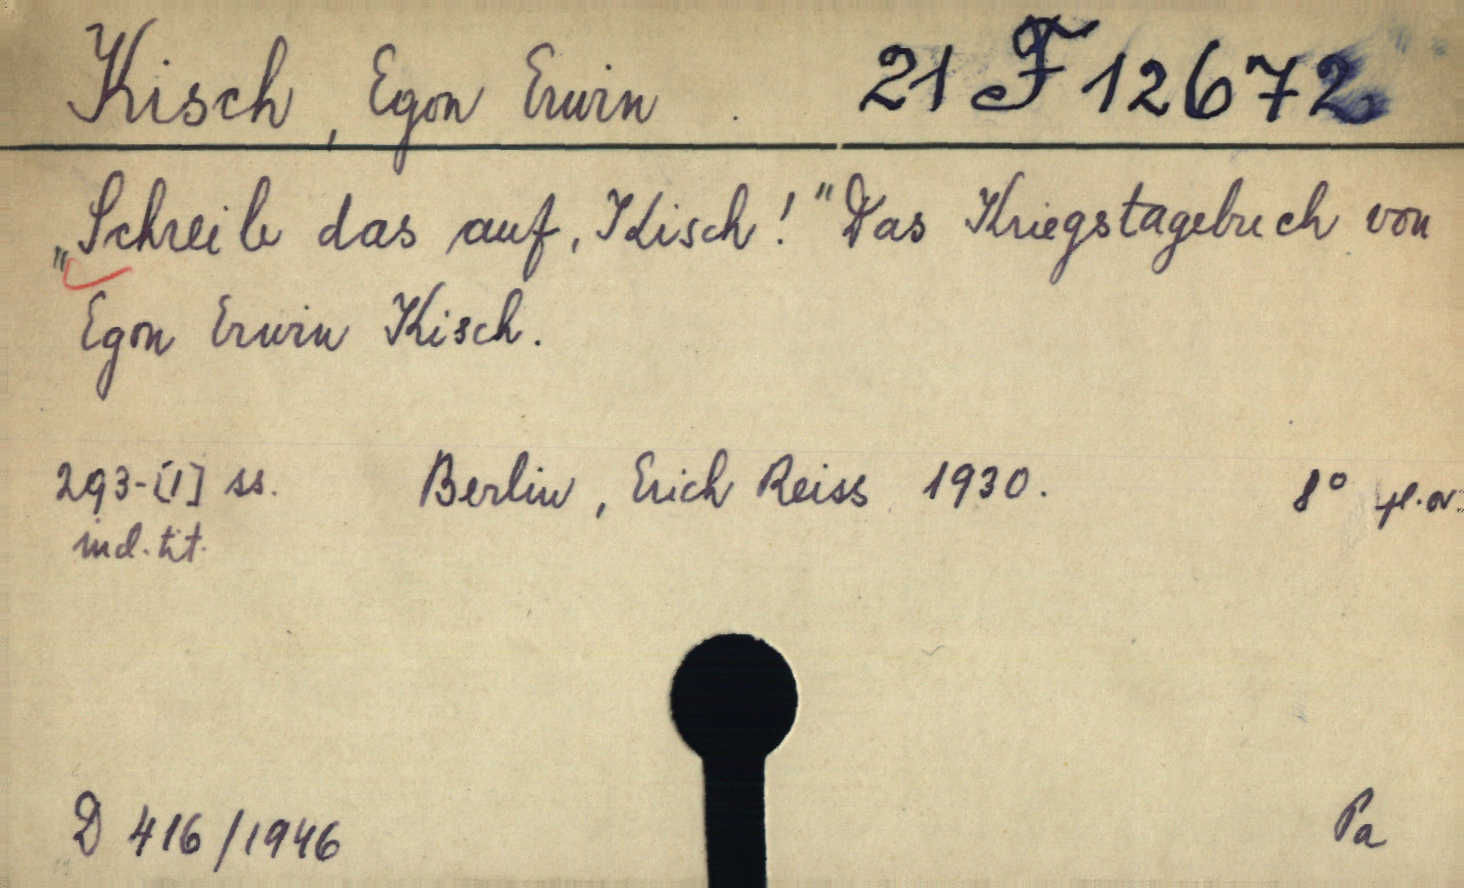 Kisch, Egon Erwin. 21 F 12672
„Schreib das auf, Kisch!" Das Kriegstagebuch von
Egon Erwin Kisch.
293-[1] ss. Berlin, Erich Reiss 1930. 8° pl. or.
ind. tit.
D 416/1946 Pa